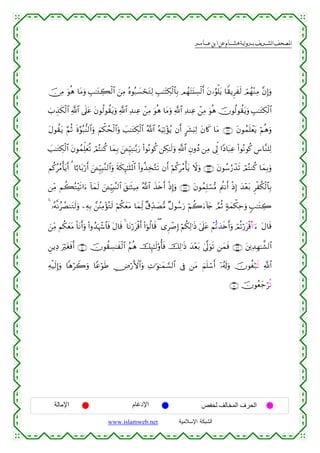 المصحف الشريف برواية هشام عن ابن عامر
وَإِنَّ مِنْهُمْ لَفَرِيقًا يَلْوُۥنَ أَلْسِنَتَهُم بِٱلْكِتَٰبِ لِتَحْسَبُوهُ مِنَ ٱلْكِتَٰبِ وَمَا هُوَ مِنَ
ٱلْكِتَٰبِ وَيَقُولُونَ هُوَ مِنْ عِندِ ٱللَّهِ وَمَا هُوَ مِنْ عِندِ ٱللَّهِ وَيَقُولُونَ عَلَى ٱللَّهِ ٱلْكَذِبَ
وَهُمْ يَعْلَمُونَ مَا كَانَ لِبَشَرٍ أَن يُؤْتِيَهُ ٱللَّهُ ٱلْكِتَٰبَ وَٱلْحُكْمَ وَٱلنُّبُوَّةَ ثُمَّ يَقُولَ
لِلنَّاسِ كُونُوا۟ عِبَادًا لِّى مِن دُونِ ٱللَّهِ وَلَٰكِن كُونُوا۟ رَبَّٰنِيِّۦنَ بِمَا كُنتُمْ تُعَلِّمُونَ ٱلْكِتَٰبَ
وَبِمَا كُنتُمْ تَدْرُسُونَ وَلَا يَأْمُرَكُمْ أَن تَتَّخِذُوا۟ ٱلْمَلَٰٓئِكَةَ وَٱلنَّبِيِّۦنَ أَرْبَابًا أَيَأْمُرُكُم
بِٱلْكُفْرِ بَعْدَ إِذْ أَنتُم مُّسْلِمُونَ وَإِذْ أَخَذَ ٱللَّهُ مِيثَٰقَ ٱلنَّبِيِّۦنَ لَمَآ ءَاتَيْتُكُم مِّن
كِتَٰبٍ وَحِكْمَةٍ ثُمَّ جَآءَكُمْ رَسُولٌ مُّصَدِّقٌ لِّمَا مَعَكُمْ لَتُؤْمِنُنَّ بِهِۦ وَلَتَنصُرُنَّهُۥ
قَالَ ءَأَقْرَرْتُمْ وَأَخَذتُّمْ عَلَىٰ ذَٰلِكُمْ إِصْرِى قَالُوٓا۟ أَقْرَرْنَا قَالَ فَٱشْهَدُوا۟ وَأَنَا۠ مَعَكُم مِّنَ
ٱلشَّٰهِدِينَ فَمَن تَوَلَّىٰ بَعْدَ ذَٰلِكَ فَأُو۟لَٰٓئِكَ هُمُ ٱلْفَٰسِقُونَ أَفَغَيْرَ دِينِ
ٱللَّهِ تَبْغُونَ وَلَهُۥٓ أَسْلَمَ مَن فِى ٱلسَّمَٰوَٰتِ وَٱلْأَرْضِ طَوْعًا وَكَرْهًا وَإِلَيْهِ
تُرْجَعُونَ
الحرف المخالف لحفص الإدغام الإمالة
الشبكة الإسلامية www.islamweb.net